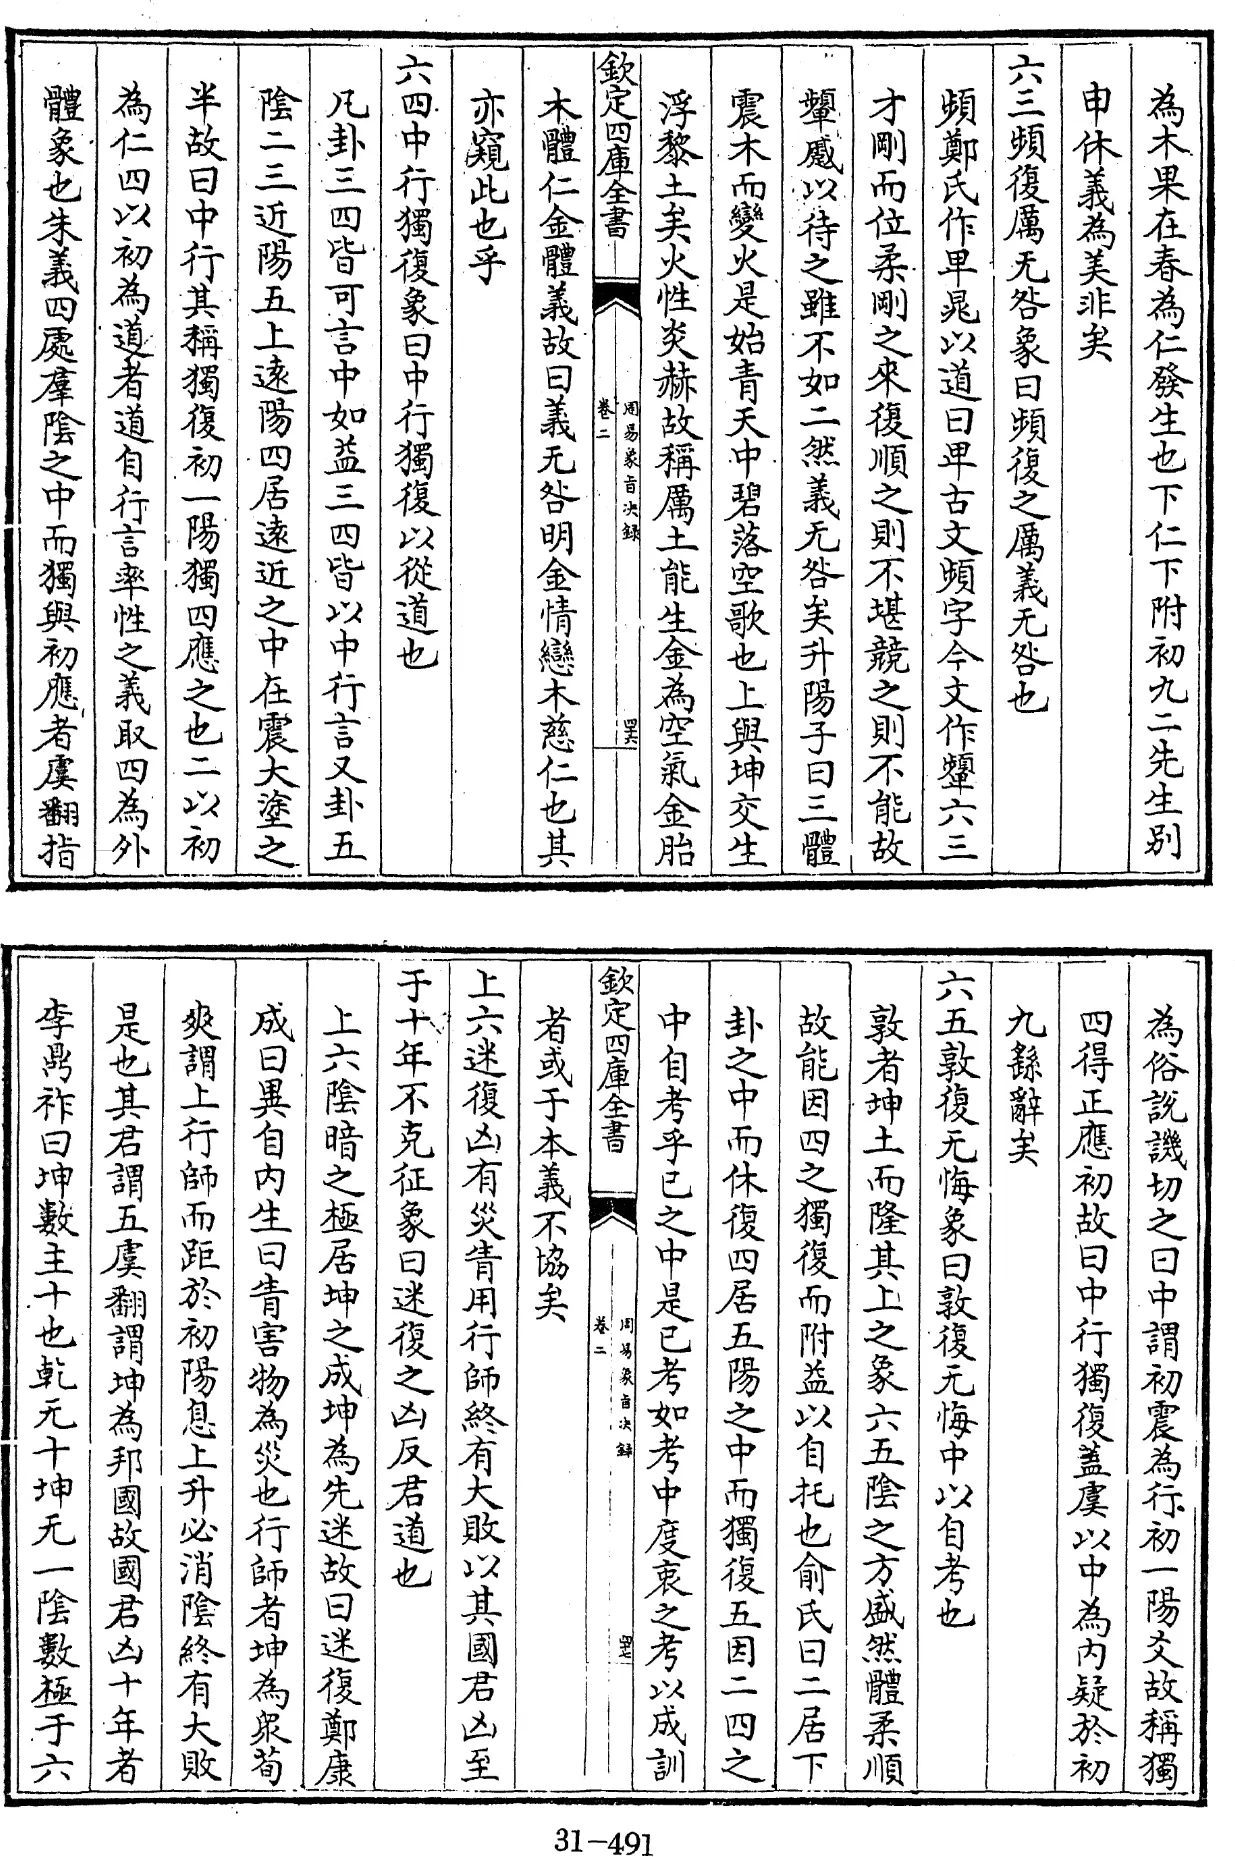 為木果在春為仁發生也下仁下附初九二先生別
申休義為美非矣
六三頻復厲无咎象曰頻復之厲義无咎也
頻鄭氏作卑晁以道曰卑古文頻字今文作顰六三
才剛而位柔剛之來復順之則不堪競之則不能故
顰蹙以待之雖不如二然義无咎矣升陽子曰三體
震木而變火是始青天中碧落空歌也上與坤交生
浮黎土矣火性炎赫故稱厲土能生金為空氣金胎
欽定四庫全書
周易象旨決錄
卷二
四六
木體仁金體義故曰義无咎明金情戀木慈仁也其
亦窺此也乎
六四中行獨復象曰中行獨復以從道也
凡卦三四皆可言中如益三四皆以中行言又卦五
陰二三近陽五上遠陽四居遠近之中在震大塗之
半故曰中行其稱獨復初一陽獨四應之也二以初
為仁四以初為道者道自行言率性之義取四為外
體象也朱義四處羣陰之中而獨與初應者虞翻指
為俗說譏切之曰中謂初震為行初一陽爻故稱獨
四得正應初故曰中行獨復蓋虞以中為內疑於初
九繇辭矣
六五敦復无悔象曰敦復无悔中以自考也
敦者坤土而隆其上之象六五陰之方盛然體柔順
故能因四之獨復而附益以自托也俞氏曰二居下
卦之中而休復四居五陽之中而獨復五因二四之
中自考乎已之中是已考如考中度衷之考以成訓
欽定四庫全書
周易象旨決錄
卷二
四七
者或于本義不協矣
上六迷復凶有災眚用行師終有大敗以其國君凶至
于十年不克征象曰迷復之凶反君道也
上六陰暗之極居坤之成坤為先迷故曰迷復鄭康
成曰異自內生曰眚害物為災也行師者坤為衆荀
爽謂上行師而距於初陽息上升必消陰終有大敗
是也其君謂五虞翻謂坤為邦國故國君凶十年者
李鼎祚曰坤數主十也乾无十坤无一陰數極于六
31-491